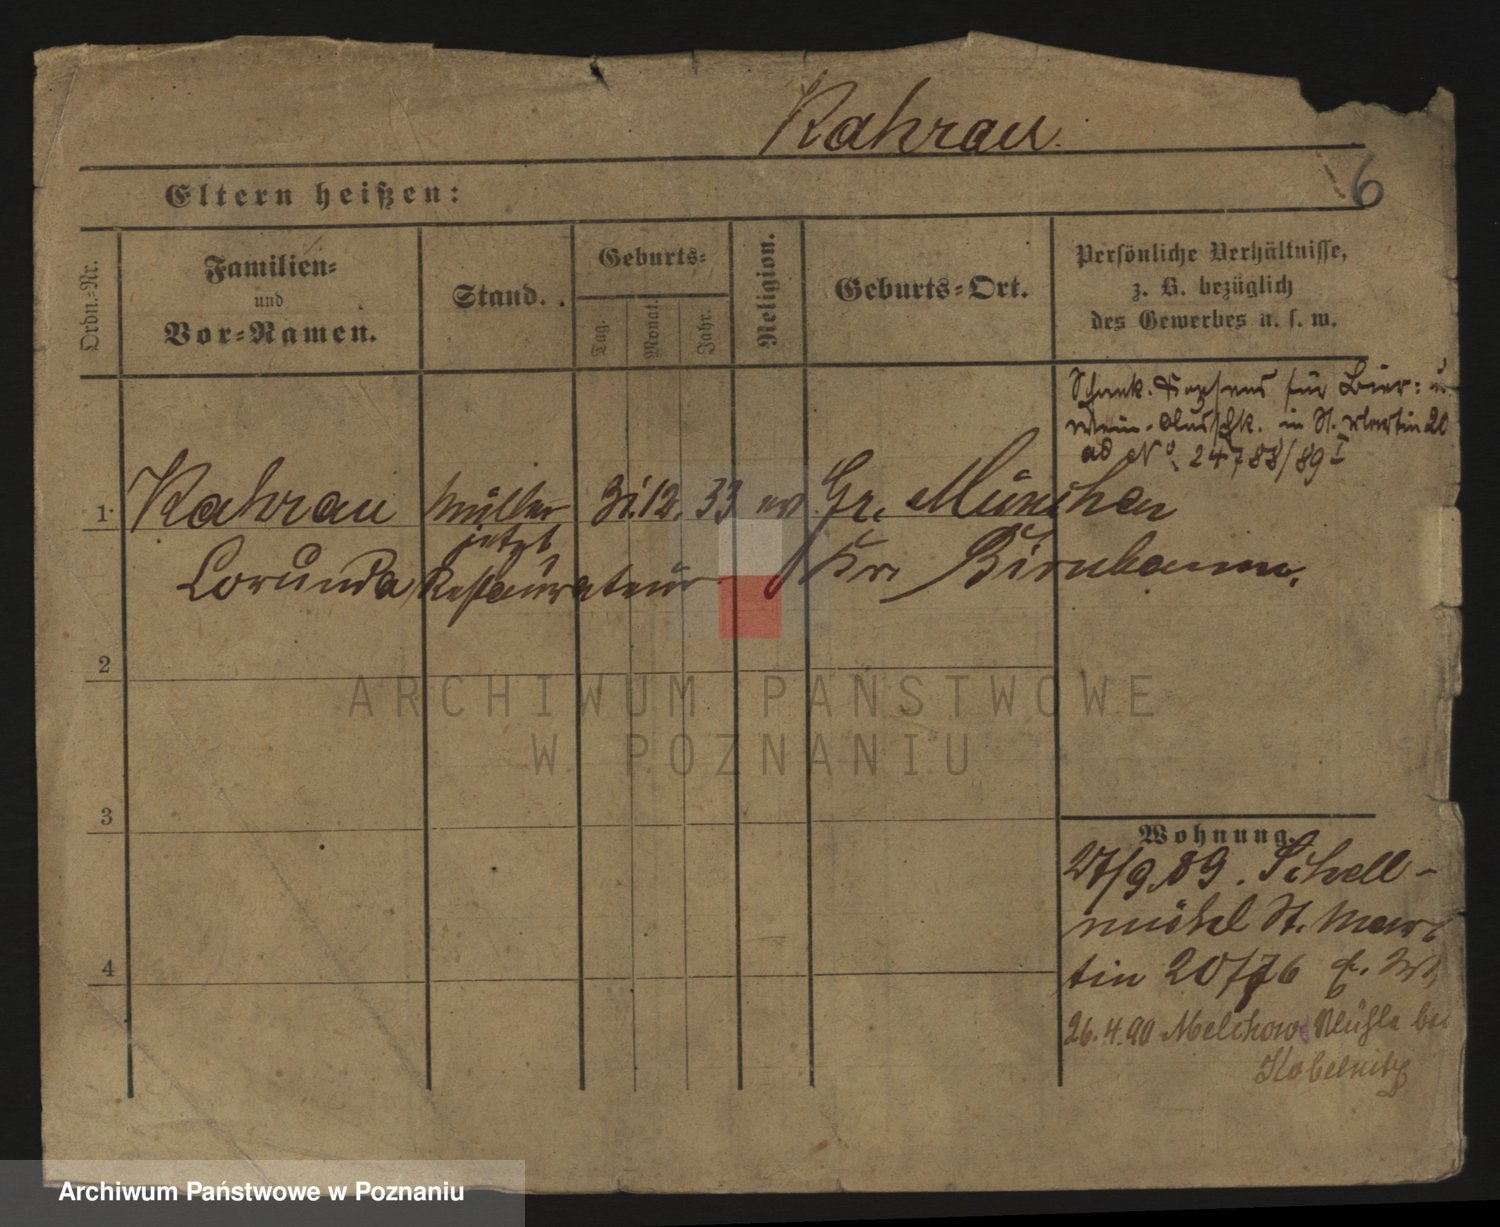 Kahrau.
6
Eltern heißen:
Ordn.-Nr.
Familien-
und
Vor-Namen.
Stand.
Geburts-
Tag.
Monat.
Jahr.
Religion.
Geburts-Ort.
Persönliche Verhältnisse,
z. B. bezüglich
des Gewerbes u. s. w.
Schank-Konsens für Bier- u.
Wein-Aussch. in St. Martin 20
ad No. 24788/89 I
1 Kahrau Müller 31. 12. 33 ev. Gr. München
jetzt
Restaurateur Kr. Birnbaum.
2
3
4
Wohnung.
27/9.89. Schell-
mühl St. Mar-
tin 20/76
26.4.90 Mühle bei
Kobelnitz
ARCHIWUM PAŃSTWOWE
W POZNANIU
Archiwum Państwowe w Poznaniu